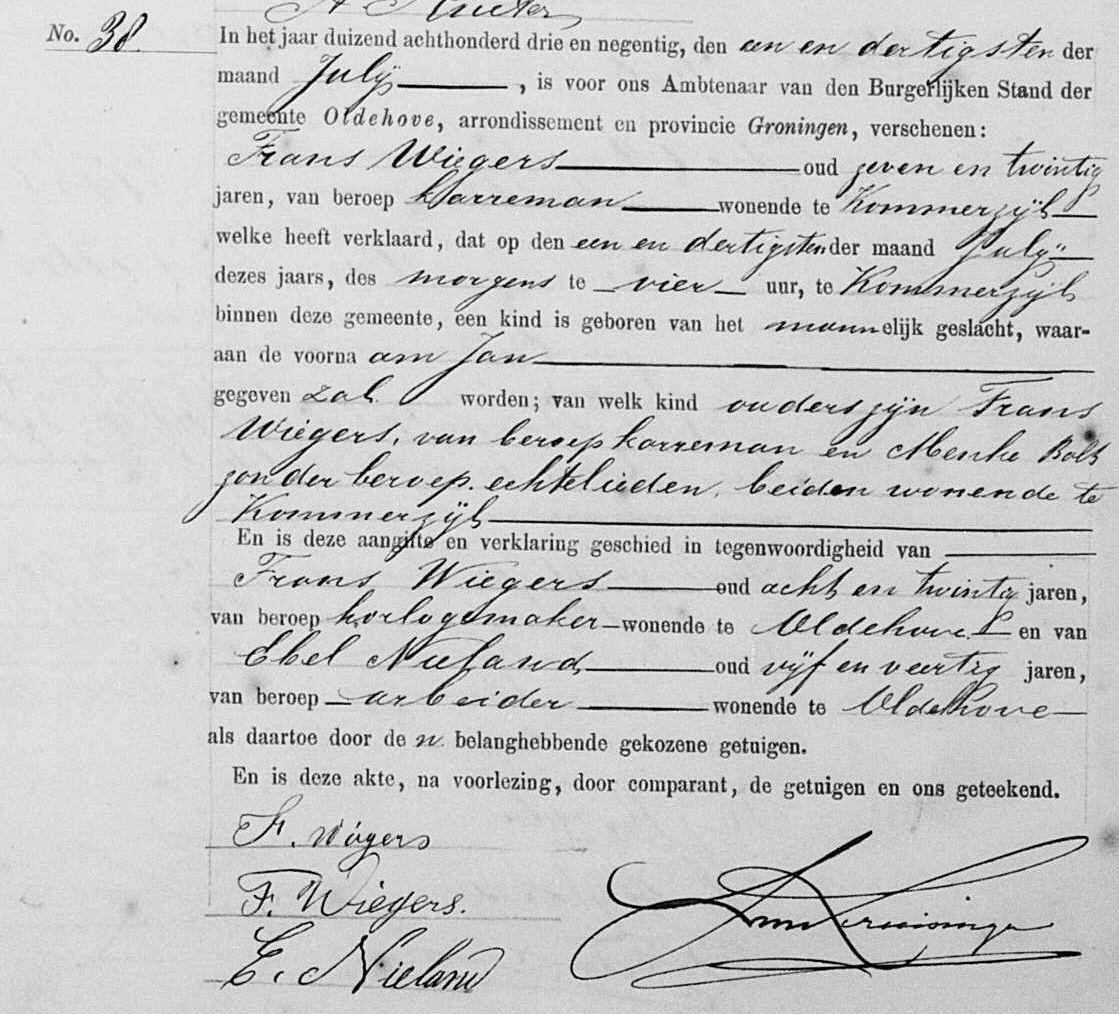 No. 38.
In het jaar duizend achthonderd drie en negentig, den een en dertigsten der
maand Julij, is voor ons Ambtenaar van den Burgerlijken Stand der
gemeente Oldehove, arrondissement en provincie Groningen, verschenen:
Frans Wiegers oud zeven en twintig
jaren, van beroep karreman wonende te Kommerzijl
welke heeft verklaard, dat op den een en dertigsten der maand Julij
dezes jaars, des morgens te vier uur, te Kommerzijl
binnen deze gemeente, een kind is geboren van het mannelijk geslacht, waar-
aan de voorna am Jan
gegeven zal worden; van welk kind ouders zijn Frans
Wiegers, van beroep karreman en Menke Bolt
zonder beroep, echtelieden, beiden wonende te
Kommerzijl
En is deze aangifte en verklaring geschied in tegenwoordigheid van
Frans Wiegers oud acht en twintig jaren,
van beroep horlogemaker wonende te Oldehove en van
Ebel Nieland oud vijf en veertig jaren,
van beroep arbeider wonende te Oldehove
als daartoe door de n belanghebbende gekozene getuigen.
En is deze akte, na voorlezing, door comparant, de getuigen en ons geteekend.
F. Wiegers
F. Wiegers.
E. Nieland
Kruisinga